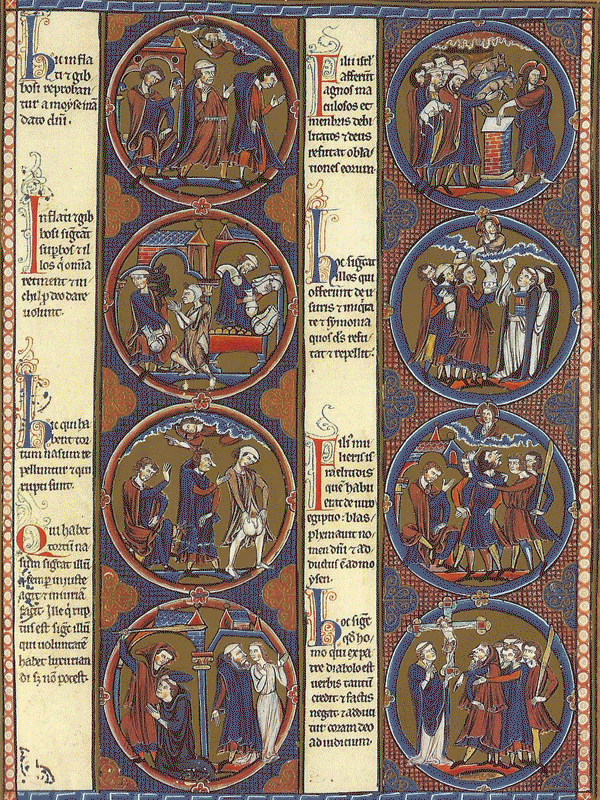 Hii infla
ti ⁊ gib
bosi reproban/
tur a moyse
dato dnī.
Inflati ⁊ gib
bosi signāt
supbos ⁊ il
los q̇ omnia
retinent ⁊ ni
chil p deo dare
volunt.
Hic qui ha
bent tor
tum nasum re
pelluntur ⁊ qui
rupti sunt.
Qui habet
tortū na
sum signat illū
q̇ semp iniuste
agit ⁊ iniuriā
facit. Ille q̇ rup
tus est sige illū
qui voluntatē
habet luxurian
di sꝫ nō potest.
Filii isrl
afferunt
agnos ma
culosos et
menbris debi
litatos ⁊ deus
refutat obla
tiones eorum.
Hoc signat
illos qui
offerunt de u
suris ⁊ iniqita
te ⁊ symonia
quos ds̄ refu
tat ⁊ repellit.
Filius mu
lieris is
raelitidis
que habu
erat de uiro
egiptio blas/
phemauit no
men dn̄i ⁊ ad
ductus ē ad mo
ysen.
Hoc sige
ho
mo qui ex pa
tre diabolo est
uerbis tantū
credit ⁊ factis
negat ⁊ adduci
tur coram deo
ad iudicium.